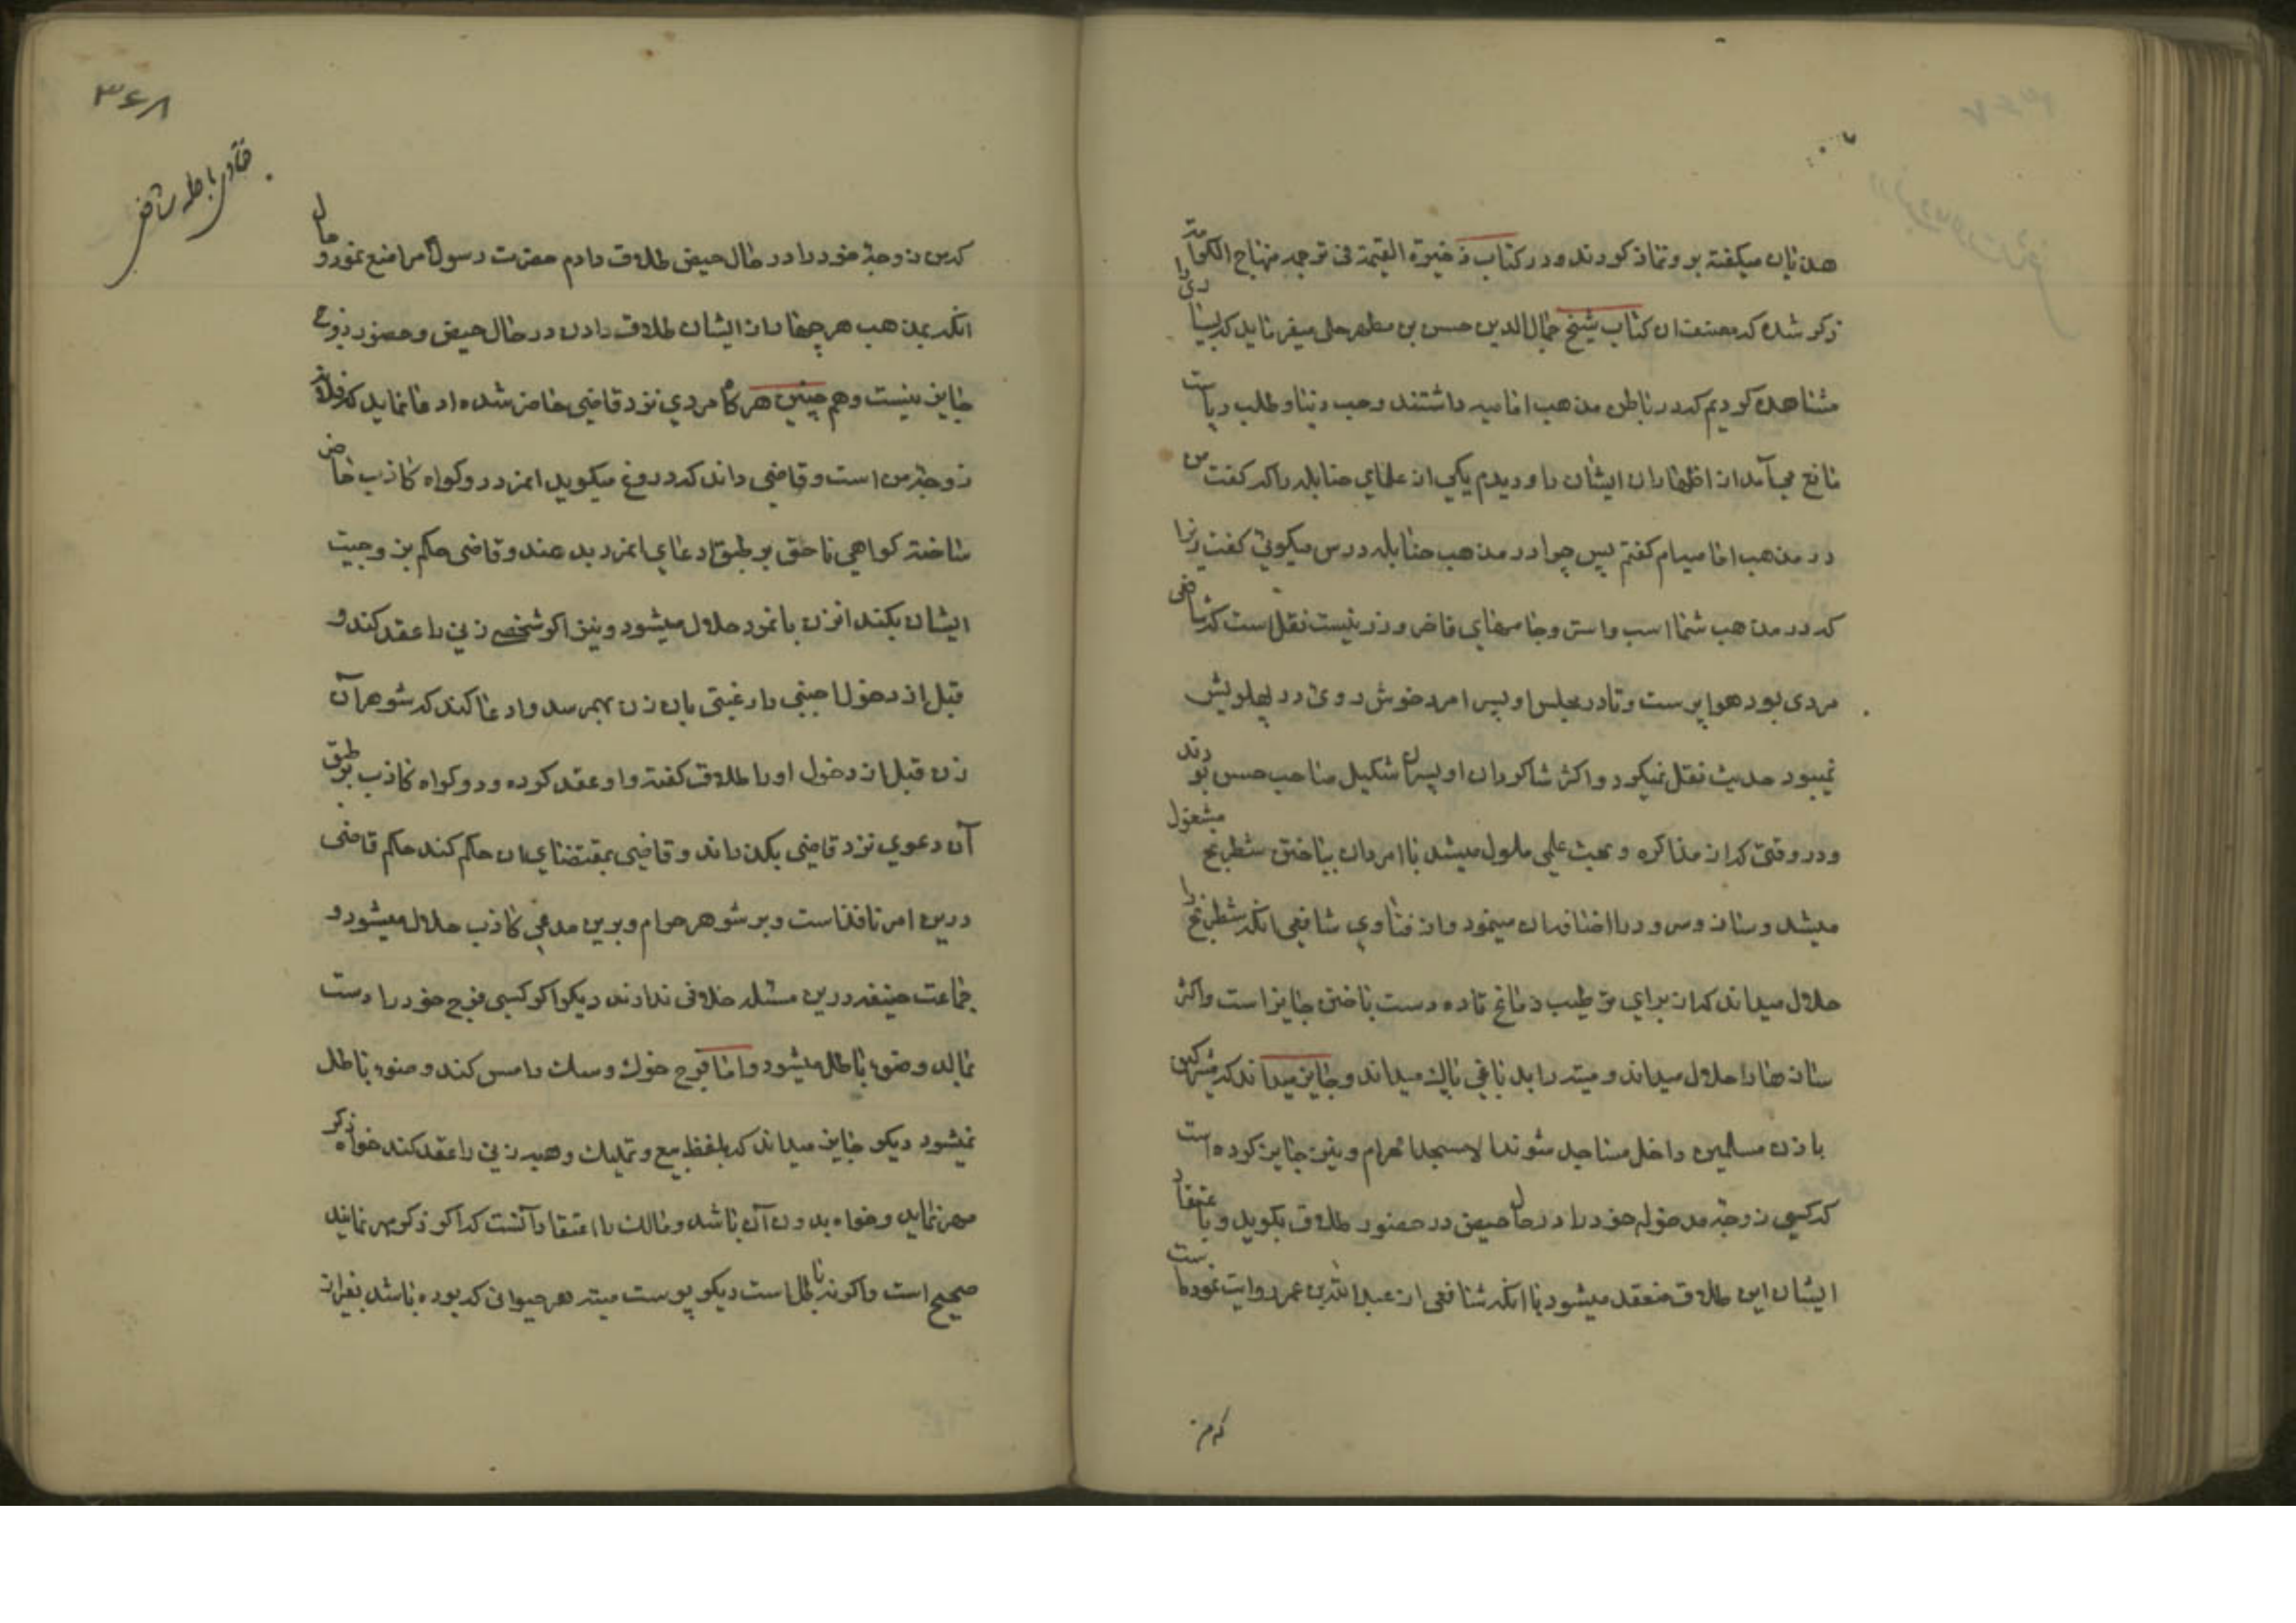 هذیان میکفته برو نماز کردند و در کتاب ذخیرة القیمة فی ترجمه منهاج الکرامة
ذکر شده که مصنف ان کتاب شیخ جمال الدین حسن بن مطهر حلی میفرماید که بسیاری را
مشاهده کردیم که در باطن مذهب امامیه داشتند و حب دنیا و طلب ریاست
مانع می آمد از اظهار ان ایشان را و دیدم یکی از علمای حنابله را که کفت من
در مذهب امامیه ام کفتم پس چرا در مذهب حنابله درس میکوئی کفت زیرا
که در مذهب شما اسب و استر و جامهای فاخر و زر نیست نقل است که شافعی
مردی بود هواپرست و تا در مجلس او پسر امرد خوش روی در پهلویش
نمیبود حدیث نقل نمیکرد و اکثر شاکردان او پسران شکیل صاحب حسن بودند
و در وقتی که از مذاکره و بحث علمی ملول میشد با امردان بباختن شطرنج مشغول
میشد و ساز و سرود را اضافه ان مینمود و از فتاوی شافعی انکه شطرنج را
حلال میداند که از برای ترطیب دماغ تا ده دست باختن جایز است و اکثر
سازها را حلال میداند و میته را بدباغی پاك میداند و جایز میداند که مشرکین
باذن مسلمین داخل مساجد شوند الا مسجد الحرام و نیز جایز کرده است
که کسی زوجهٔ مدخوله خود را در حال حیض در حضور طلاق بکوید و باعتقاد
ایشان این طلاق منعقد میشود با انکه شافعی از عبدالله بن عمر روایت نموده است
که من
۳۶۸
فتاوی باطله شافعی
که من زوجهٔ خود را در حال حیض طلاق دادم حضرت رسول مرا منع نمود و حال
انکه بمذهب هر چهار از ایشان طلاق دادن در حال حیض و حضور زوج
جایز نیست و هم چنین هر کاه مردی نزد قاضی حاضر شده ادعا نماید که فلان
زوجهٔ من است و قاضی داند که دروغ میکوید انمرد دو کواه کاذب حاضر
ساخته کواهی ناحق بر طبق ادعای انمرد بدهند و قاضی حکم بزوجیت
ایشان بکند انزن بانمرد حلال میشود و نیز اکر شخصی زنی را عقد کند و
قبل از دخول اجنبی را رغبتی بان زن بهمرسد و ادعا کند که شوهر آن
زن قبل از دخول او را طلاق کفته و او عقد کرده و دو کواه کاذب بر طبق
آن دعوی نزد قاضی بکذراند و قاضی بمقتضای ان حکم کند حکم قاضی
درین امر نافذ است و بر شوهر حرام و برین مدعی کاذب حلال میشود و
جماعت حنیفه درین مسئله خلافی ندارند دیکر اکر کسی فرج خود را دست
بمالد وضوء باطل میشود و اما فرج خوك و سك را مس کند وضوء باطل
نمیشود دیکر جایز میداند که بلفظ بیع و تملیك و هبه زنی را عقد کند خواه ذکر
مهر نماید و خواه بدون آن باشد و مالك را اعتقاد آنست که اکر ذکر مهر نمایند
صحیح است و اکر نه باطل است دیکر پوست میته هر حیوانی که بوده باشد بغیر از